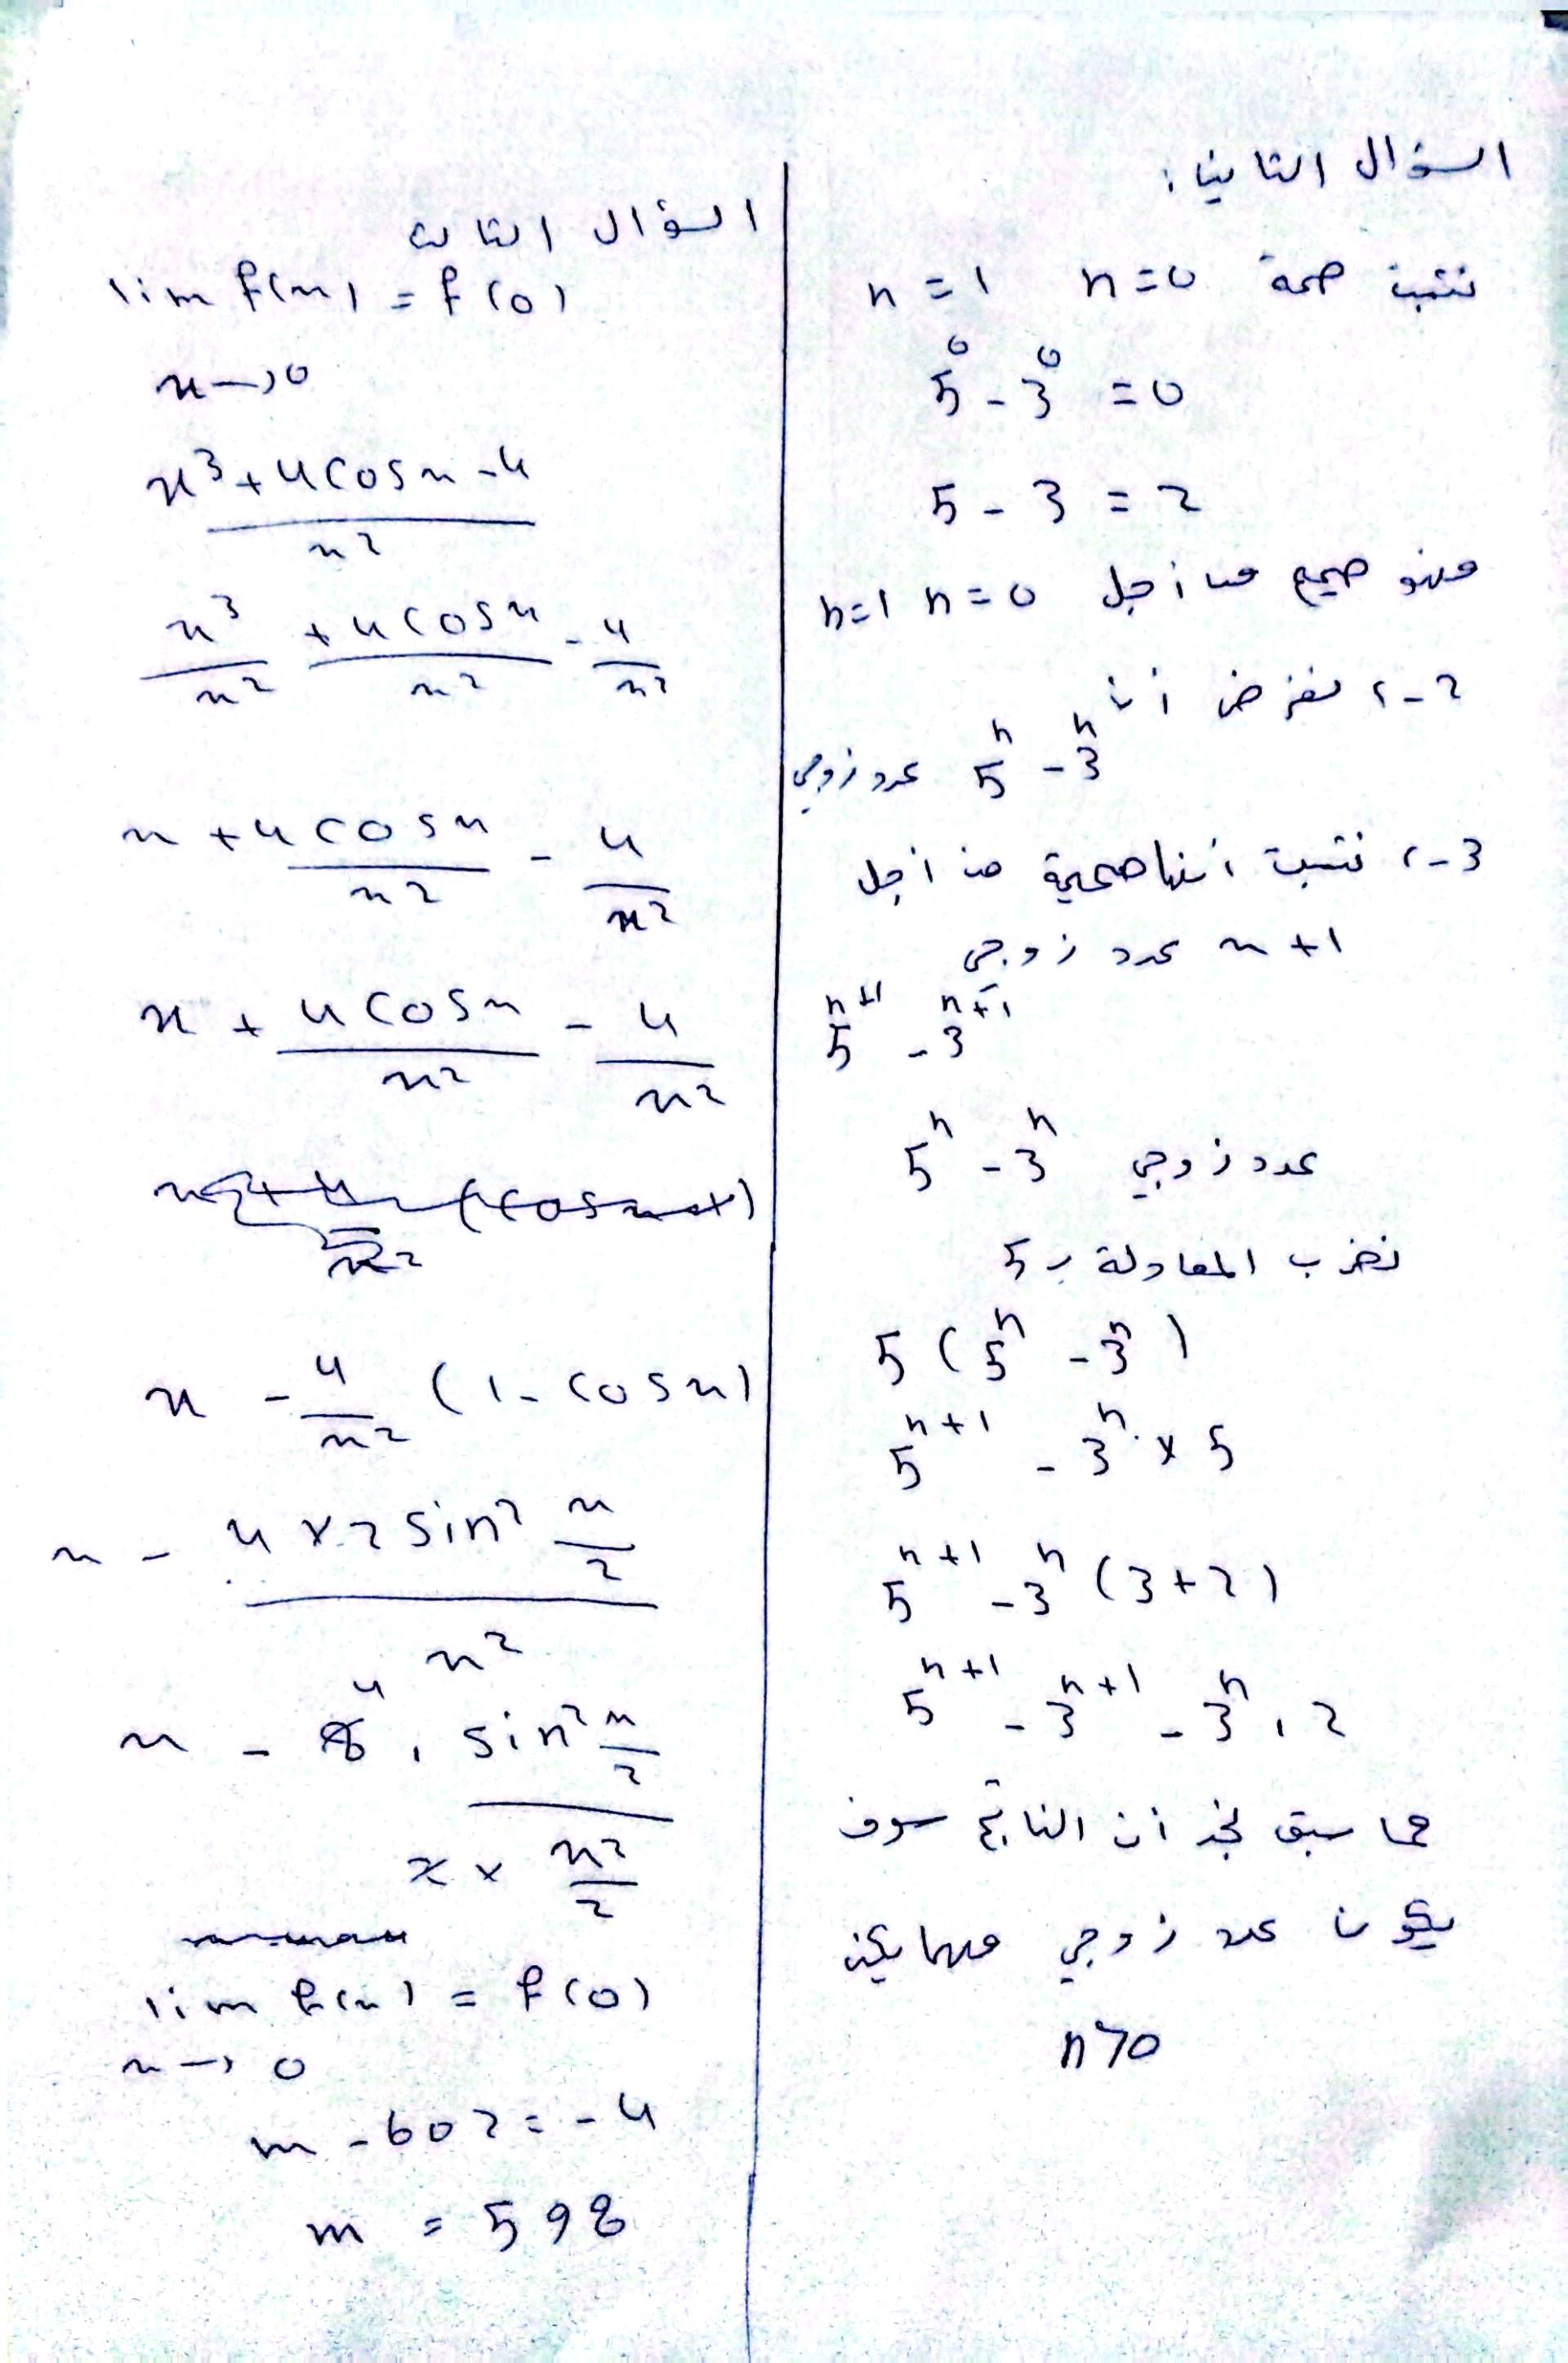 السؤال الثاني:
نثبت صحة n=0 n=1
5^0 - 3^0 = 0
5 - 3 = 2
فهو صحيح من أجل n=0 n=1
2-، نفرض أن
5^n - 3^n عدد زوجي
3-، نثبت أنها صحيحة من أجل
n+1 عدد زوجي
5^{n+1} - 3^{n+1}
5^n - 3^n عدد زوجي
نضرب المعادلة بـ 5
5 (5^n - 3^n)
5^{n+1} - 3^n × 5
5^{n+1} - 3^n (3+2)
5^{n+1} - 3^{n+1} - 3^n . 2
مما سبق نجد أن الناتج سوف
يكون عدد زوجي مهما يكن
n>0
السؤال الثالث
lim f(x) = f(0)
x→0
x^3+4cosx-4 / x^2
x^3/x^2 + 4cosx/x^2 - 4/x^2
x + 4cosx/x^2 - 4/x^2
x + 4cosx/x^2 - 4/x^2
x - 4/x^2 (1-cosx)
x - 4×2 sin^2 x/2 / x^2
x - 8^4 . sin^2 x/2 / 2 × x^2/2
lim f(x) = f(0)
x→0
m - 602 = -4
m = 598